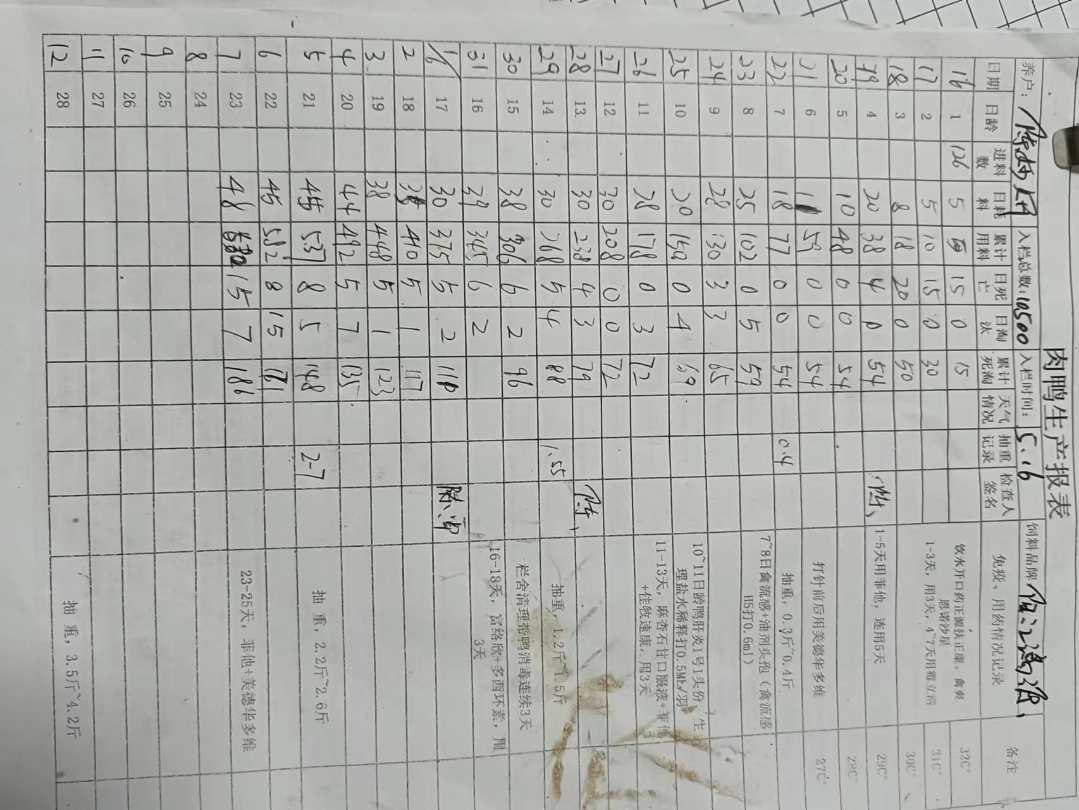 肉鸭生产报表
养户: 入栏总数:10500 入栏时间: 5.16 饲料品牌
日期 日龄 进料数 日耗料 累计用料 日死亡 日淘汰 累计死淘 天气情况 抽重记录 检查人签名 免疫、用药情况记录 备注
16 1 126 5 15 0 15 饮水开口药正源肽正康、禽爽 恩诺沙星 32C°
17 2 5 10 15 0 30 1-3天,用3天,4-7天用 31C°
18 3 8 18 20 0 50 30C°
19 4 20 38 4 0 54 陈 1-5天用菲他,连用5天 29C°
20 5 10 48 0 0 54 28C°
21 6 11 59 0 0 54 打针前后用美德华多维 27C°
22 7 18 77 0 0 54 0.4 抽重,0.3斤~0.4斤
23 8 25 102 0 5 59 7~8日禽流感+油剂头孢(禽流感H5打0.6ml)
24 9 28 130 3 3 65
25 10 20 150 0 4 69 10~11日龄鸭肝炎1号1头份(生理盐水稀释打0.5ML/羽
26 11 28 178 0 3 72 11-13天,麻杏石甘口服液+菲他+佳牧速康,用3天
27 12 30 208 0 0 72
28 13 30 238 4 3 79 陈
29 14 30 268 5 4 88 1.55 抽重,1.2斤~1.5斤
30 15 38 306 6 2 96 栏舍清理带鸭消毒连续3天
31 16 39 345 6 2 16-18天,富络欣+多西环素,用3天
1/6 17 30 375 5 2 110 陈
2 18 35 410 5 1 117
3 19 38 448 5 1 123
4 20 44 492 5 7 135
5 21 45 537 8 5 148 2-7 抽重,2.2斤~2.6斤
6 22 45 582 8 15 171
7 23 48 630 15 7 186 23-25天,菲他+美德华多维
8 24
9 25
10 26
11 27
12 28 抽重,3.5斤~4.2斤